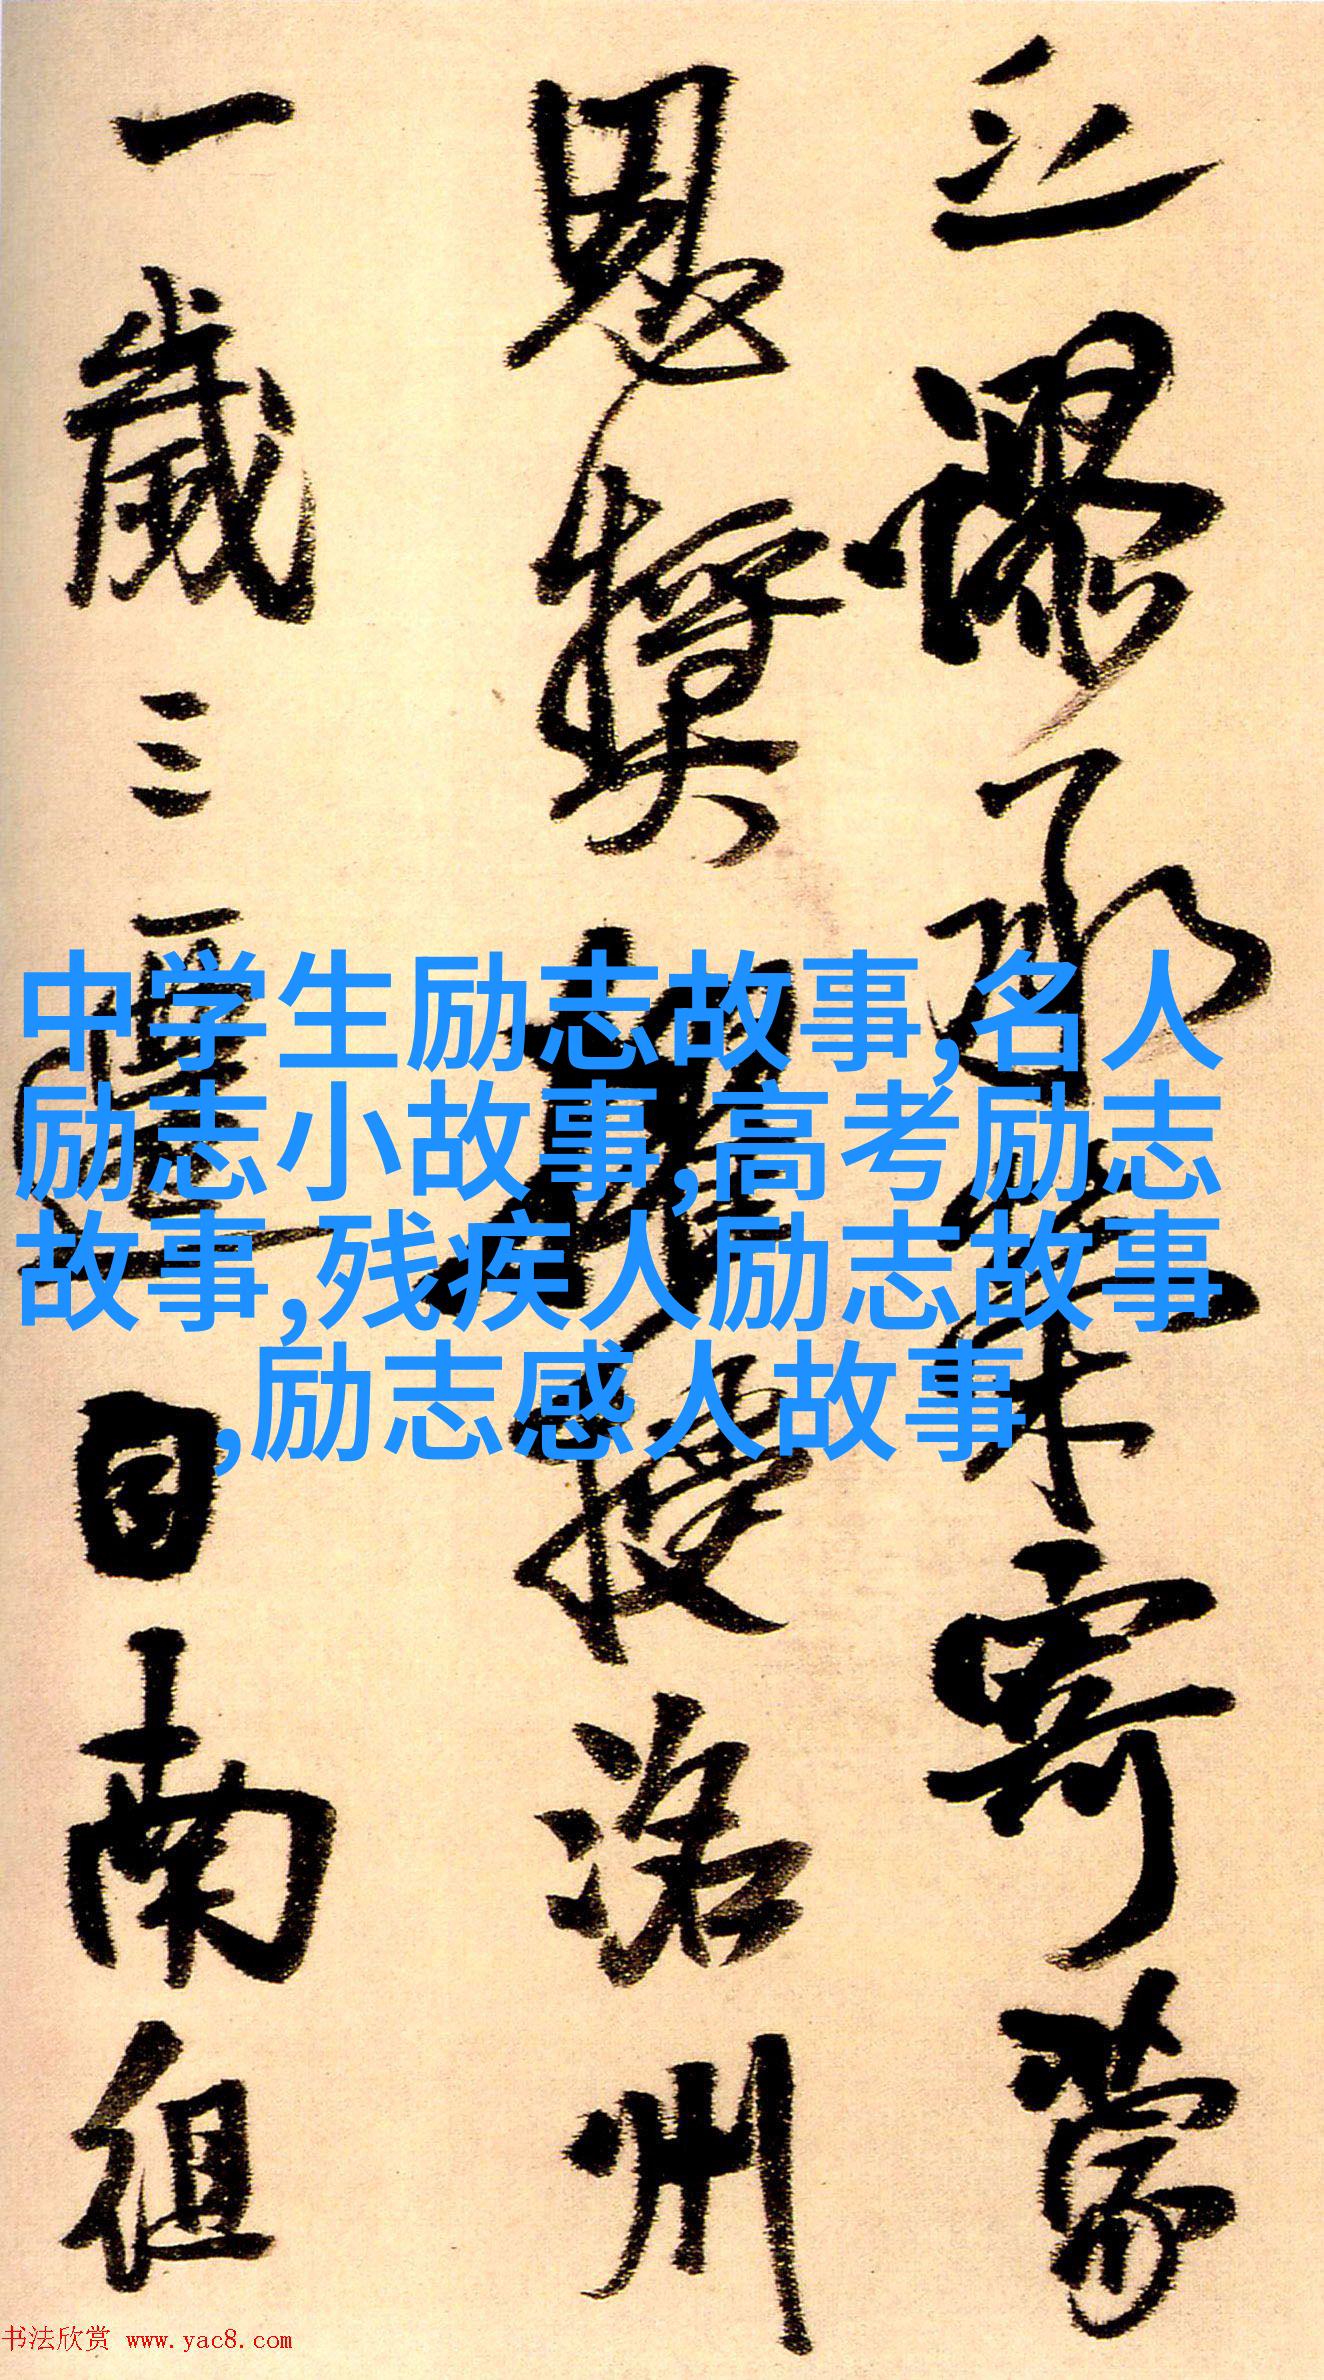 立謬承策寄蒙
恩獎擢授洛州
一歲三遷日南徂
中学生励志故事,名人
励志小故事,高考励志
故事,残疾人励志故事
,励志感人故事
书法欣赏 www.yac8.com